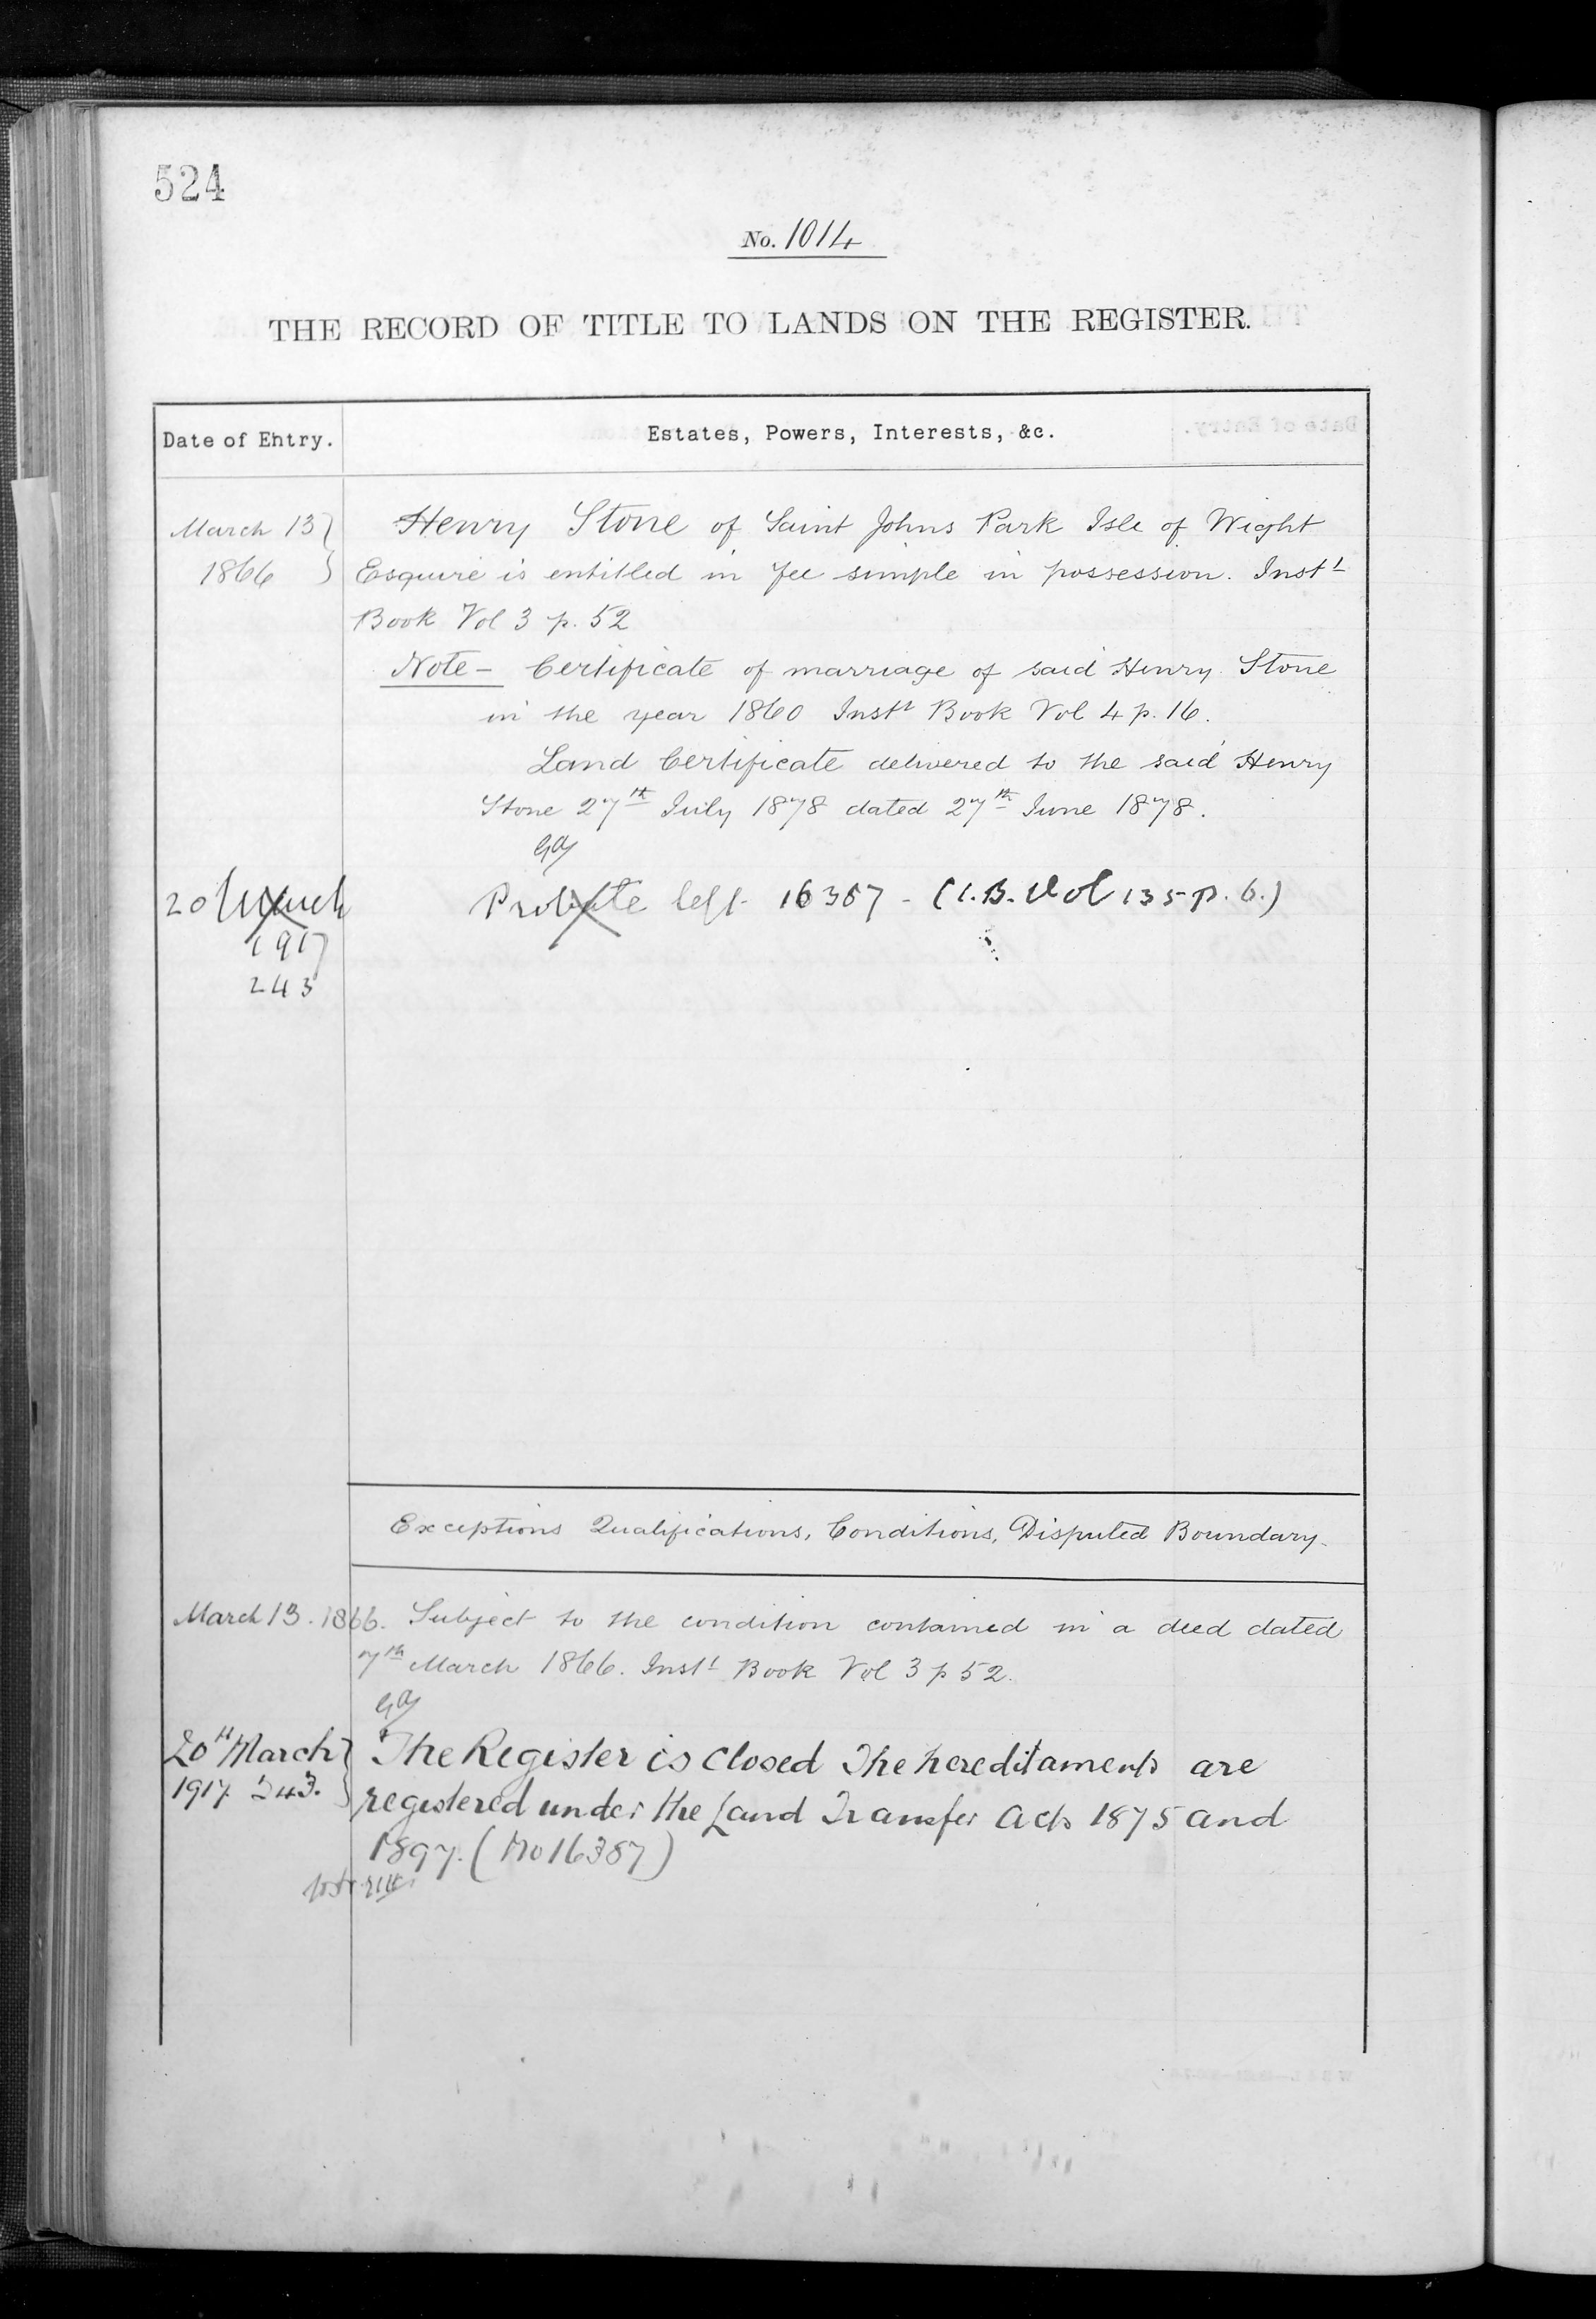 524
No. 1014
THE RECORD OF TITLE TO LANDS ON THE REGISTER.
Date of Entry.
Estates, Powers, Interests, &c.
March 13 Henry Stone of Saint Johns Park Isle of Wight
1866 Esquire is entitled in fee simple in possession. Inst^t
Book Vol 3 p. 52
Note - Certificate of marriage of said Henry Stone
in the year 1860 Inst^t Book Vol 4 p. 16.
Land Certificate delivered to the said Henry
Stone 27th July 1878 dated 27th June 1878.
20 March Probate left 16387 - (I.B. Vol 135 p. 6.)
1917
243
Exceptions Qualifications, Conditions, Disputed Boundary.
March 13. 1866. Subject to the condition contained in a deed dated
7th March 1866. Inst^t Book Vol 3 p 52.
20th March The Register is closed The hereditaments are
1917 243. registered under the Land Transfer Acts 1875 and
1897. (No 16387)